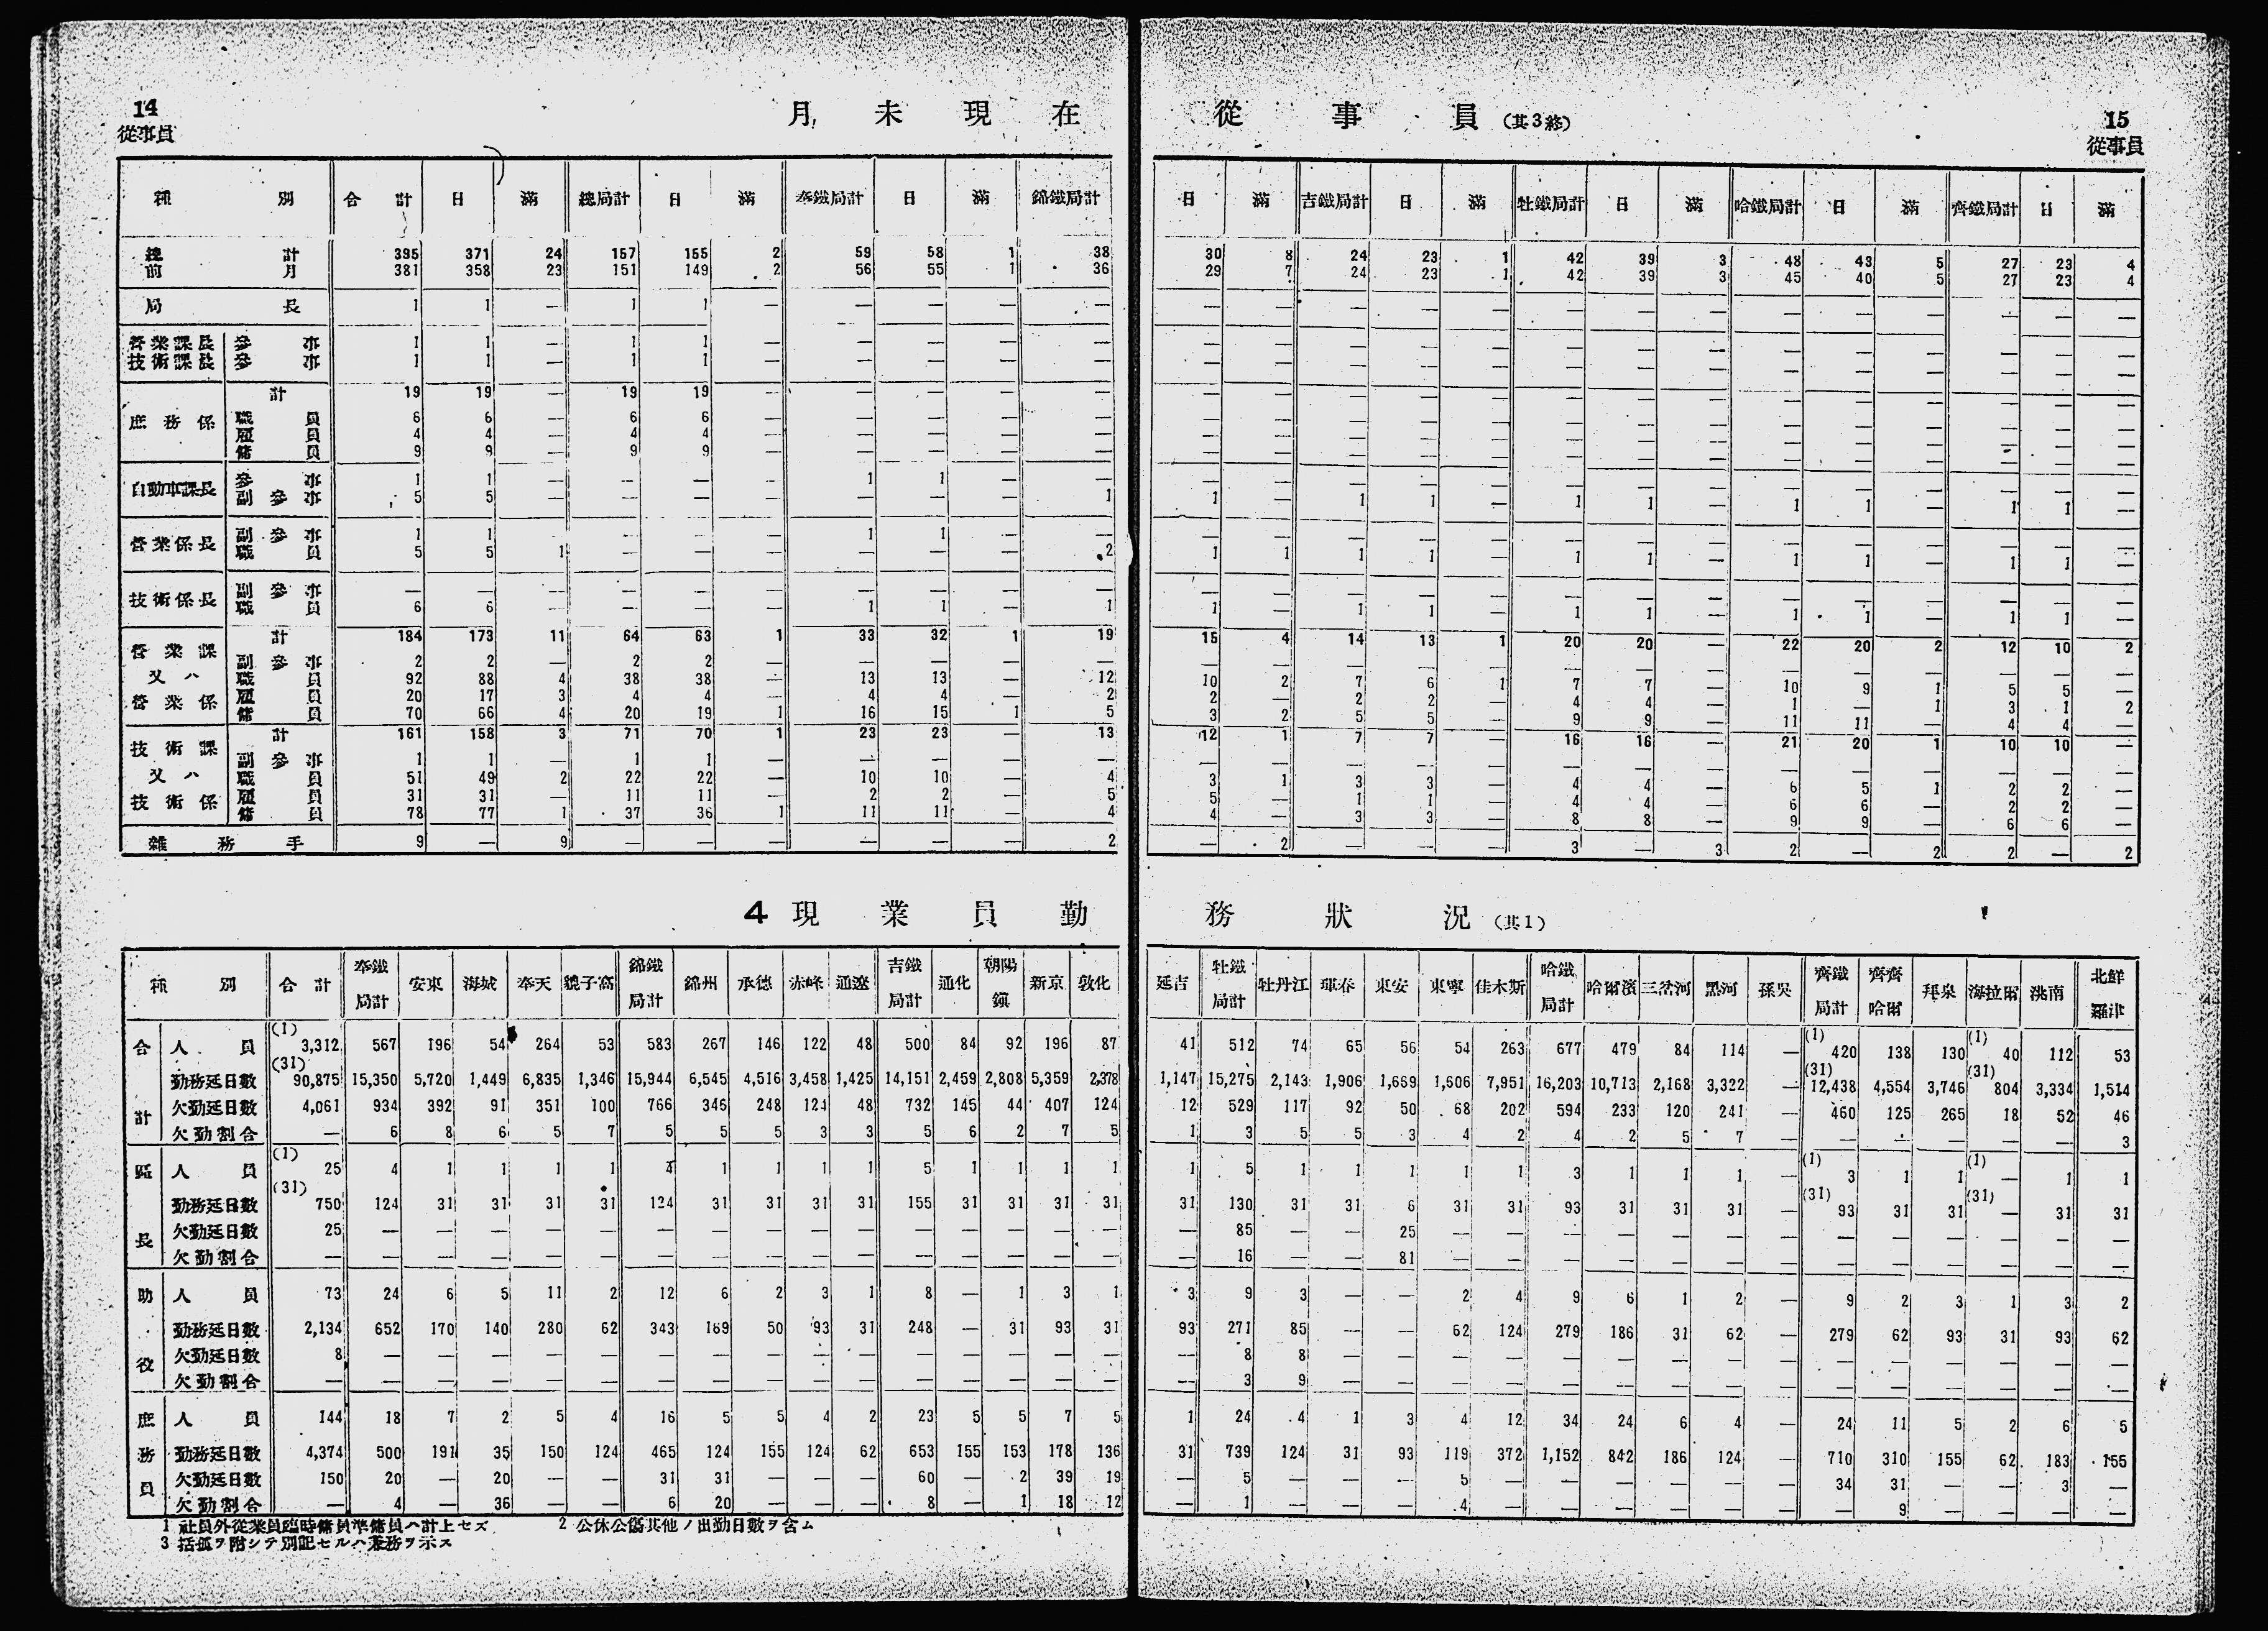 14
從事員
月末現在
從事員(其3終)
15
從事員
種別 合計 日 滿 總局計 日 滿 奉鐵局計 日 滿 錦鐵局計 日 滿 吉鐵局計 日 滿 牡鐵局計 日 滿 哈鐵局計 日 滿 齊鐵局計 日 滿
總計 395 371 24 157 155 2 59 58 1 38 30 8 24 23 1 42 39 3 48 43 5 27 23 4
前月 381 358 23 151 149 2 56 55 1 36 29 7 24 23 1 42 39 3 45 40 5 27 23 4
局長 1 1 — 1 1 — — — — — — — — — — — — — — — — — — —
營業課長 參事 1 1 — 1 1 — — — — — — — — — — — — — — — — — — —
技術課長 參事 1 1 — 1 1 — — — — — — — — — — — — — — — — — — —
庶務係 計 19 19 — 19 19 — — — — — — — — — — — — — — — — — — —
職員 6 6 — 6 6 — — — — — — — — — — — — — — — — — — —
雇員 4 4 — 4 4 — — — — — — — — — — — — — — — — — — —
傭員 9 9 — 9 9 — — — — — — — — — — — — — — — — — — —
自動車課長 參事 1 1 — — — — 1 1 — — — — — — — — — — — — — — — —
副參事 5 5 — — — — — — — 1 1 — 1 1 — 1 1 — 1 1 — 1 1 —
營業係長 副參事 1 1 — — — — 1 1 — — — — — — — — — — — — — — — —
職員 5 5 1 — — — — — — 2 1 1 1 1 — 1 1 — 1 1 — 1 1 —
技術係長 副參事 — — — — — — — — — — — — — — — — — — — — — — — —
職員 6 6 — — — — 1 1 — 1 1 — 1 1 — 1 1 — 1 1 — 1 1 —
營業課又ハ營業係 計 184 173 11 64 63 1 33 32 1 19 15 4 14 13 1 20 20 — 22 20 2 12 10 2
副參事 2 2 — 2 2 — — — — — — — — — — — — — — — — — — —
職員 92 88 4 38 38 — 13 13 — 12 10 2 7 6 1 7 7 — 10 9 1 5 5 —
雇員 20 17 3 4 4 — 4 4 — 2 2 — 2 2 — 4 4 — 1 — 1 3 1 2
傭員 70 66 4 20 19 1 16 15 1 5 3 2 5 5 — 9 9 — 11 11 — 4 4 —
技術課又ハ技術係 計 161 158 3 71 70 1 23 23 — 13 12 1 7 7 — 16 16 — 21 20 1 10 10 —
副參事 1 1 — 1 1 — — — — — — — — — — — — — — — — — — —
職員 51 49 2 22 22 — 10 10 — 4 3 1 3 3 — 4 4 — 6 5 1 2 2 —
雇員 31 31 — 11 11 — 2 2 — 5 5 — 1 1 — 4 4 — 6 6 — 2 2 —
傭員 78 77 1 37 36 1 11 11 — 4 4 — 3 3 — 8 8 — 9 9 — 6 6 —
雜務手 9 — 9 — — — — — — 2 — 2 — — — 3 — 3 2 — 2 2 — 2
4 現業員勤務狀況(其1)
種別 合計 奉鐵局計 安東 海城 奉天 貔子窩 錦鐵局計 錦州 承德 赤峰 通遼 吉鐵局計 通化 朝陽鎭 新京 敦化 延吉 牡鐵局計 牡丹江 琿春 東安 東寧 佳木斯 哈鐵局計 哈爾濱 三岔河 黑河 孫吳 齊鐵局計 齊齊哈爾 拜泉 海拉爾 洮南 北鮮羅津
合計 人員 (1)3,312 567 196 54 264 53 583 267 146 122 48 500 84 92 196 87 41 512 74 65 56 54 263 677 479 84 114 — (1)420 138 130 (1)40 112 53
勤務延日數 (31)90,875 15,350 5,720 1,449 6,835 1,346 15,944 6,545 4,516 3,458 1,425 14,151 2,459 2,808 5,359 2,378 1,147 15,275 2,143 1,906 1,669 1,606 7,951 16,203 10,713 2,168 3,322 — (31)12,438 4,554 3,746 (31)804 3,334 1,514
欠勤延日數 4,061 934 392 91 351 100 766 346 248 124 48 732 145 44 407 124 12 529 117 92 50 68 202 594 233 120 241 — 460 125 265 18 52 46
欠勤割合 — 6 8 6 5 7 5 5 5 3 3 5 6 2 7 5 1 3 5 5 3 4 2 4 2 5 7 — — — — — — 3
區長 人員 (1)25 4 1 1 1 1 4 1 1 1 1 5 1 1 1 1 1 5 1 1 1 1 1 3 1 1 1 — (1)3 1 1 (1)— 1 1
勤務延日數 (31)750 124 31 31 31 31 124 31 31 31 31 155 31 31 31 31 31 130 31 31 6 31 31 93 31 31 31 — (31)93 31 31 (31)— 31 31
欠勤延日數 25 — — — — — — — — — — — — — — — — 85 — — 25 — — — — — — — — — — — — —
欠勤割合 — — — — — — — — — — — — — — — — — 16 — — 81 — — — — — — — — — — — — —
助役 人員 73 24 6 5 11 2 12 6 2 3 1 8 — 1 3 1 3 9 3 — — 2 4 9 6 1 2 — 9 2 3 1 3 2
勤務延日數 2,134 652 170 140 280 62 343 169 50 93 31 248 — 31 93 31 93 271 85 — — 62 124 279 186 31 62 — 279 62 93 31 93 62
欠勤延日數 8 — — — — — — — — — — — — — — — — 8 8 — — — — — — — — — — — — — — —
欠勤割合 — — — — — — — — — — — — — — — — — 3 9 — — — — — — — — — — — — — — —
庶務員 人員 144 18 7 2 5 4 16 5 5 4 2 23 5 5 7 5 1 24 4 1 3 4 12 34 24 6 4 — 24 11 5 2 6 5
勤務延日數 4,374 500 191 35 150 124 465 124 155 124 62 653 155 153 178 136 31 739 124 31 93 119 372 1,152 842 186 124 — 710 310 155 62 183 155
欠勤延日數 150 20 — 20 — — 31 31 — — — 60 — 2 39 19 — 5 — — — 5 — — — — — — 34 31 — — 3 —
欠勤割合 — 4 — 36 — — 6 20 — — — 8 — 1 18 12 — 1 — — — 4 — — — — — — — 9 — — — —
1 社員外從業員臨時傭員準傭員ハ計上セズ 2 公休公傷其他ノ出勤日數ヲ含ム
3 括弧ヲ附シテ別記セルハ兼務ヲ示ス